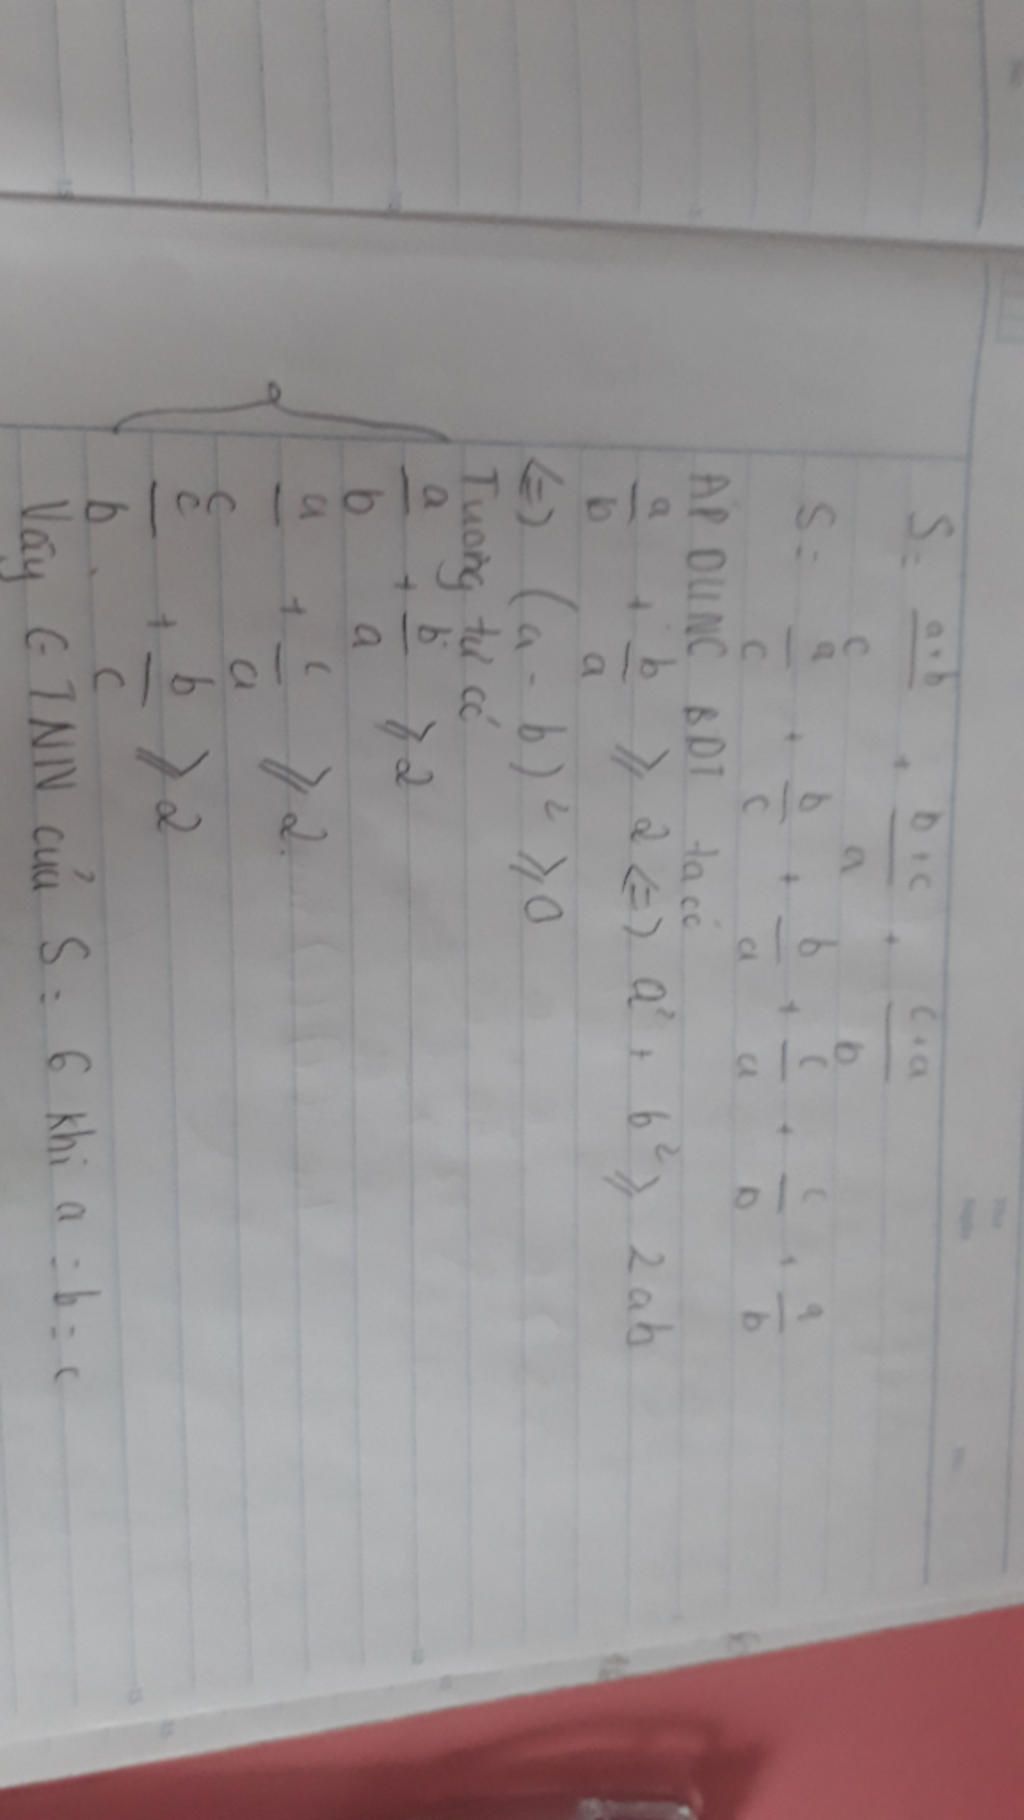 S = a+b/c + b+c/a + c+a/b
S = a/c + b/c + b/a + c/a + c/b + a/b
ÁP DỤNG BĐT ta có
a/b + b/a ⩾ 2 <=> a² + b² ⩾ 2ab
<=> (a - b)² ⩾ 0
Tương tự có
a/b + b/a ⩾ 2
a/c + c/a ⩾ 2.
c/b + b/c ⩾ 2
Vậy GTNN của S = 6 khi a = b = c